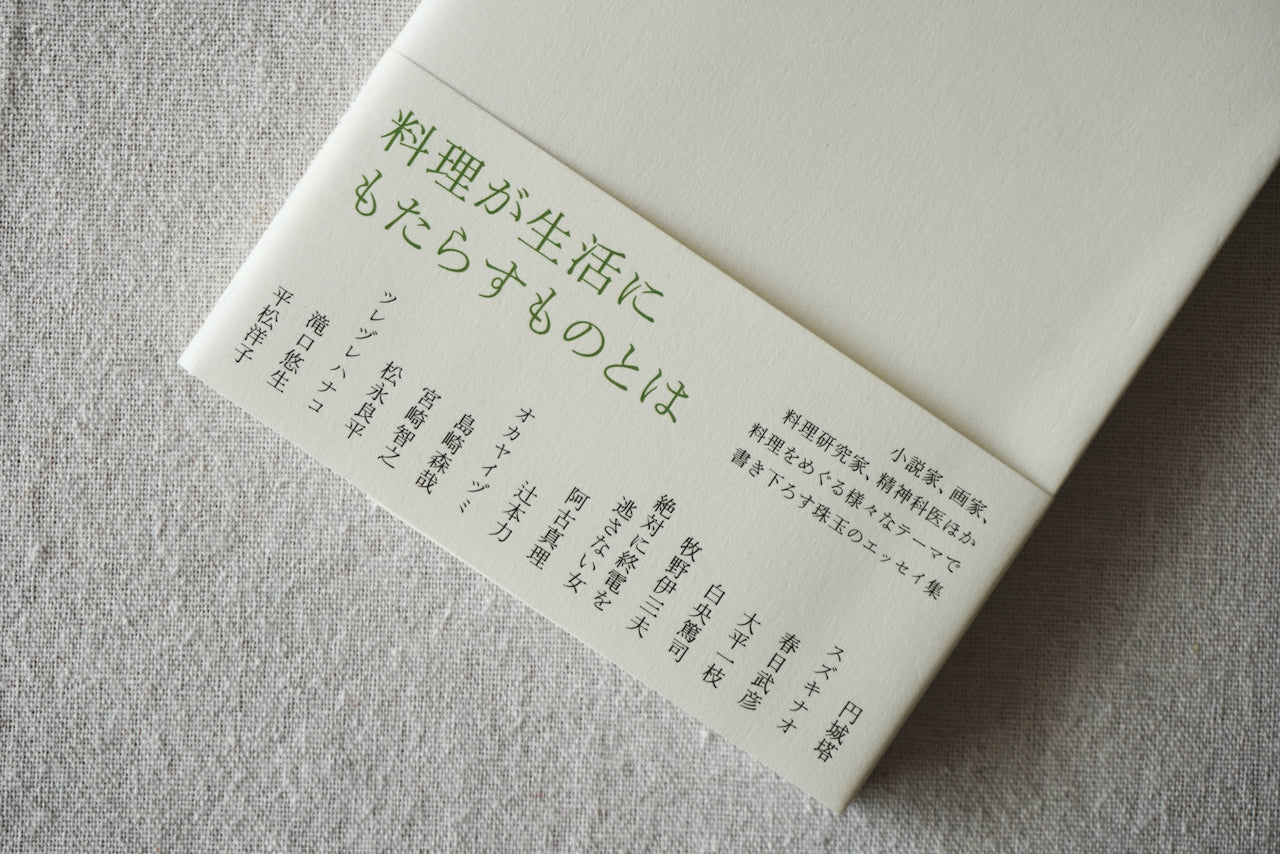 料理が生活に
もたらすものとは
小説家、画家、
料理研究家、精神科医ほか
料理をめぐる様々なテーマで
書き下ろす珠玉のエッセイ集
円城塔
スズキナオ
春日武彦
大平一枝
白央篤司
牧野伊三夫
絶対に終電を
逃さない女
阿古真理
辻本力
オカヤイヅミ
島崎森哉
宮崎智之
松永良平
ツレヅレハナコ
滝口悠生
平松洋子